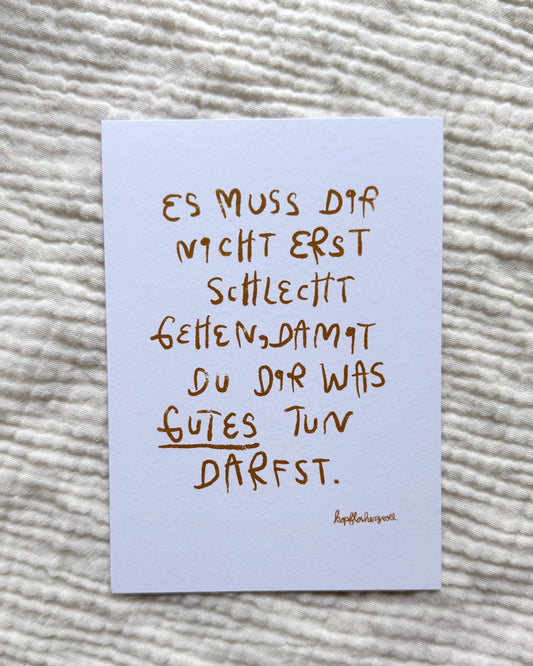 ES MUSS DIR
NICHT ERST
SCHLECHT
GEHEN, DAMIT
DU DIR WAS
GUTES TUN
DARFST.
kopflosherzvoll